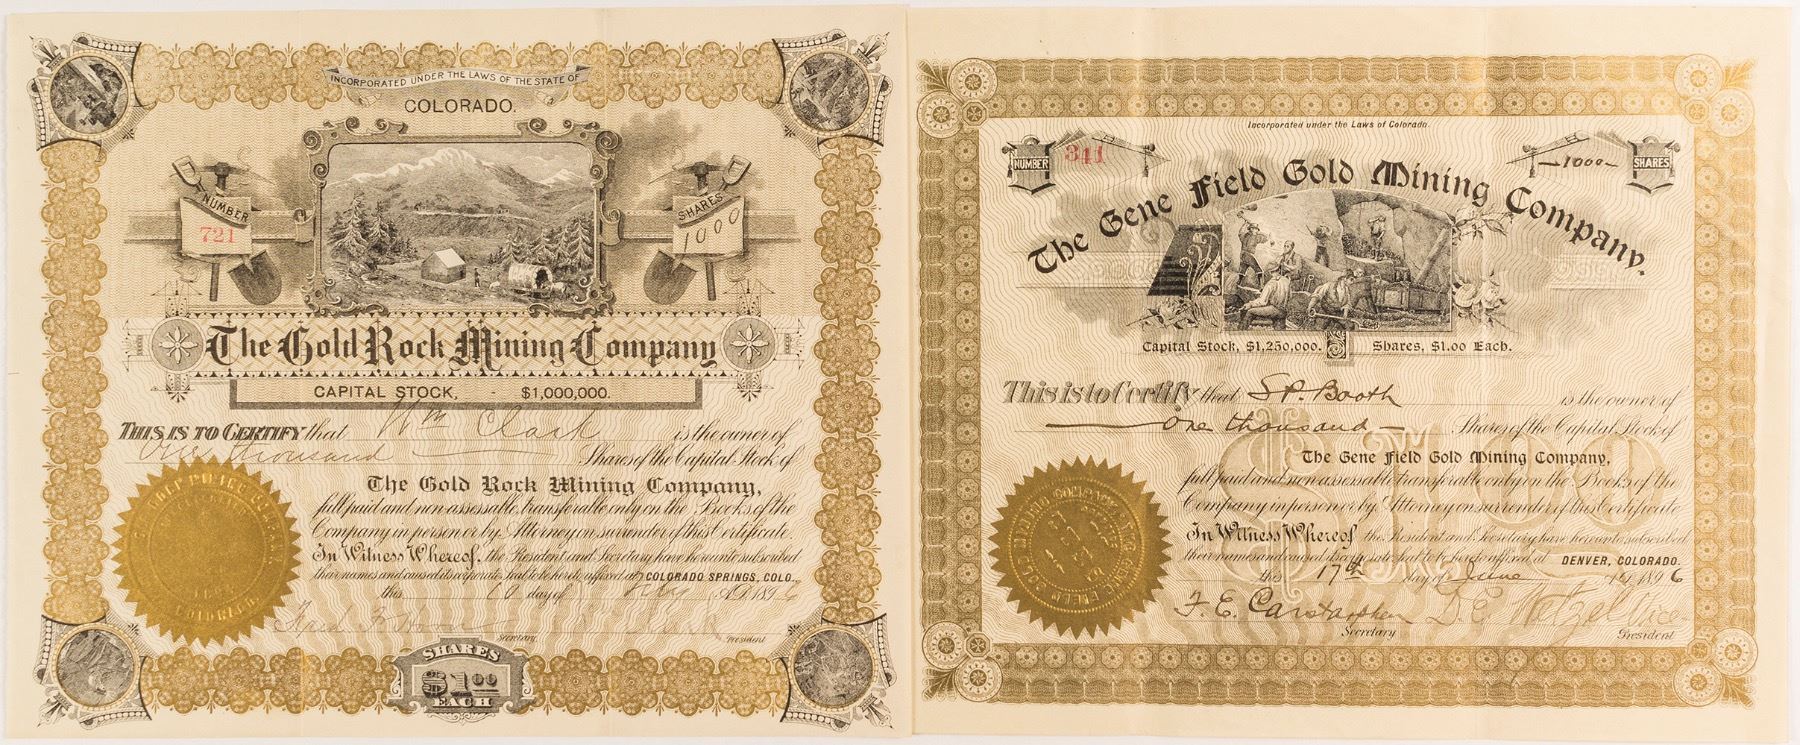 INCORPORATED UNDER THE LAWS OF THE STATE OF
COLORADO.
NUMBER
721
SHARES
1000
The Gold Rock Mining Company
CAPITAL STOCK, - $1,000,000.
THIS IS TO CERTIFY that Wm Clark is the owner of
One thousand Shares of the Capital Stock of
The Gold Rock Mining Company,
full paid and non-assessable, transferable only on the Books of the
Company in person or by Attorney on surrender of this Certificate.
In Witness Whereof, the President and Secretary have hereunto subscribed
their names and caused its corporate Seal to be hereto affixed at COLORADO SPRINGS, COLO.
this 10 day of A.D. 1896
Secretary.
President
SHARES
$1.00
EACH
COLORADO
Incorporated under the Laws of Colorado.
NUMBER
341
1000
SHARES
The Gene Field Gold Mining Company.
Capital Stock, $1,250,000. Shares, $1.00 Each.
This is to Certify that S.P. Booth is the owner of
one thousand Shares of the Capital Stock of
The Gene Field Gold Mining Company,
full paid and non assessable transferable only on the Books of the
Company in person or by Attorney on surrender of this Certificate
In Witness Whereof the President and Secretary have hereunto subscribed
their names and caused its corporate Seal to be hereto affixed at DENVER, COLORADO.
this 17th day of June A.D. 1896
F. E. Carstarphen D. E. Wetzel Vice-
Secretary
President